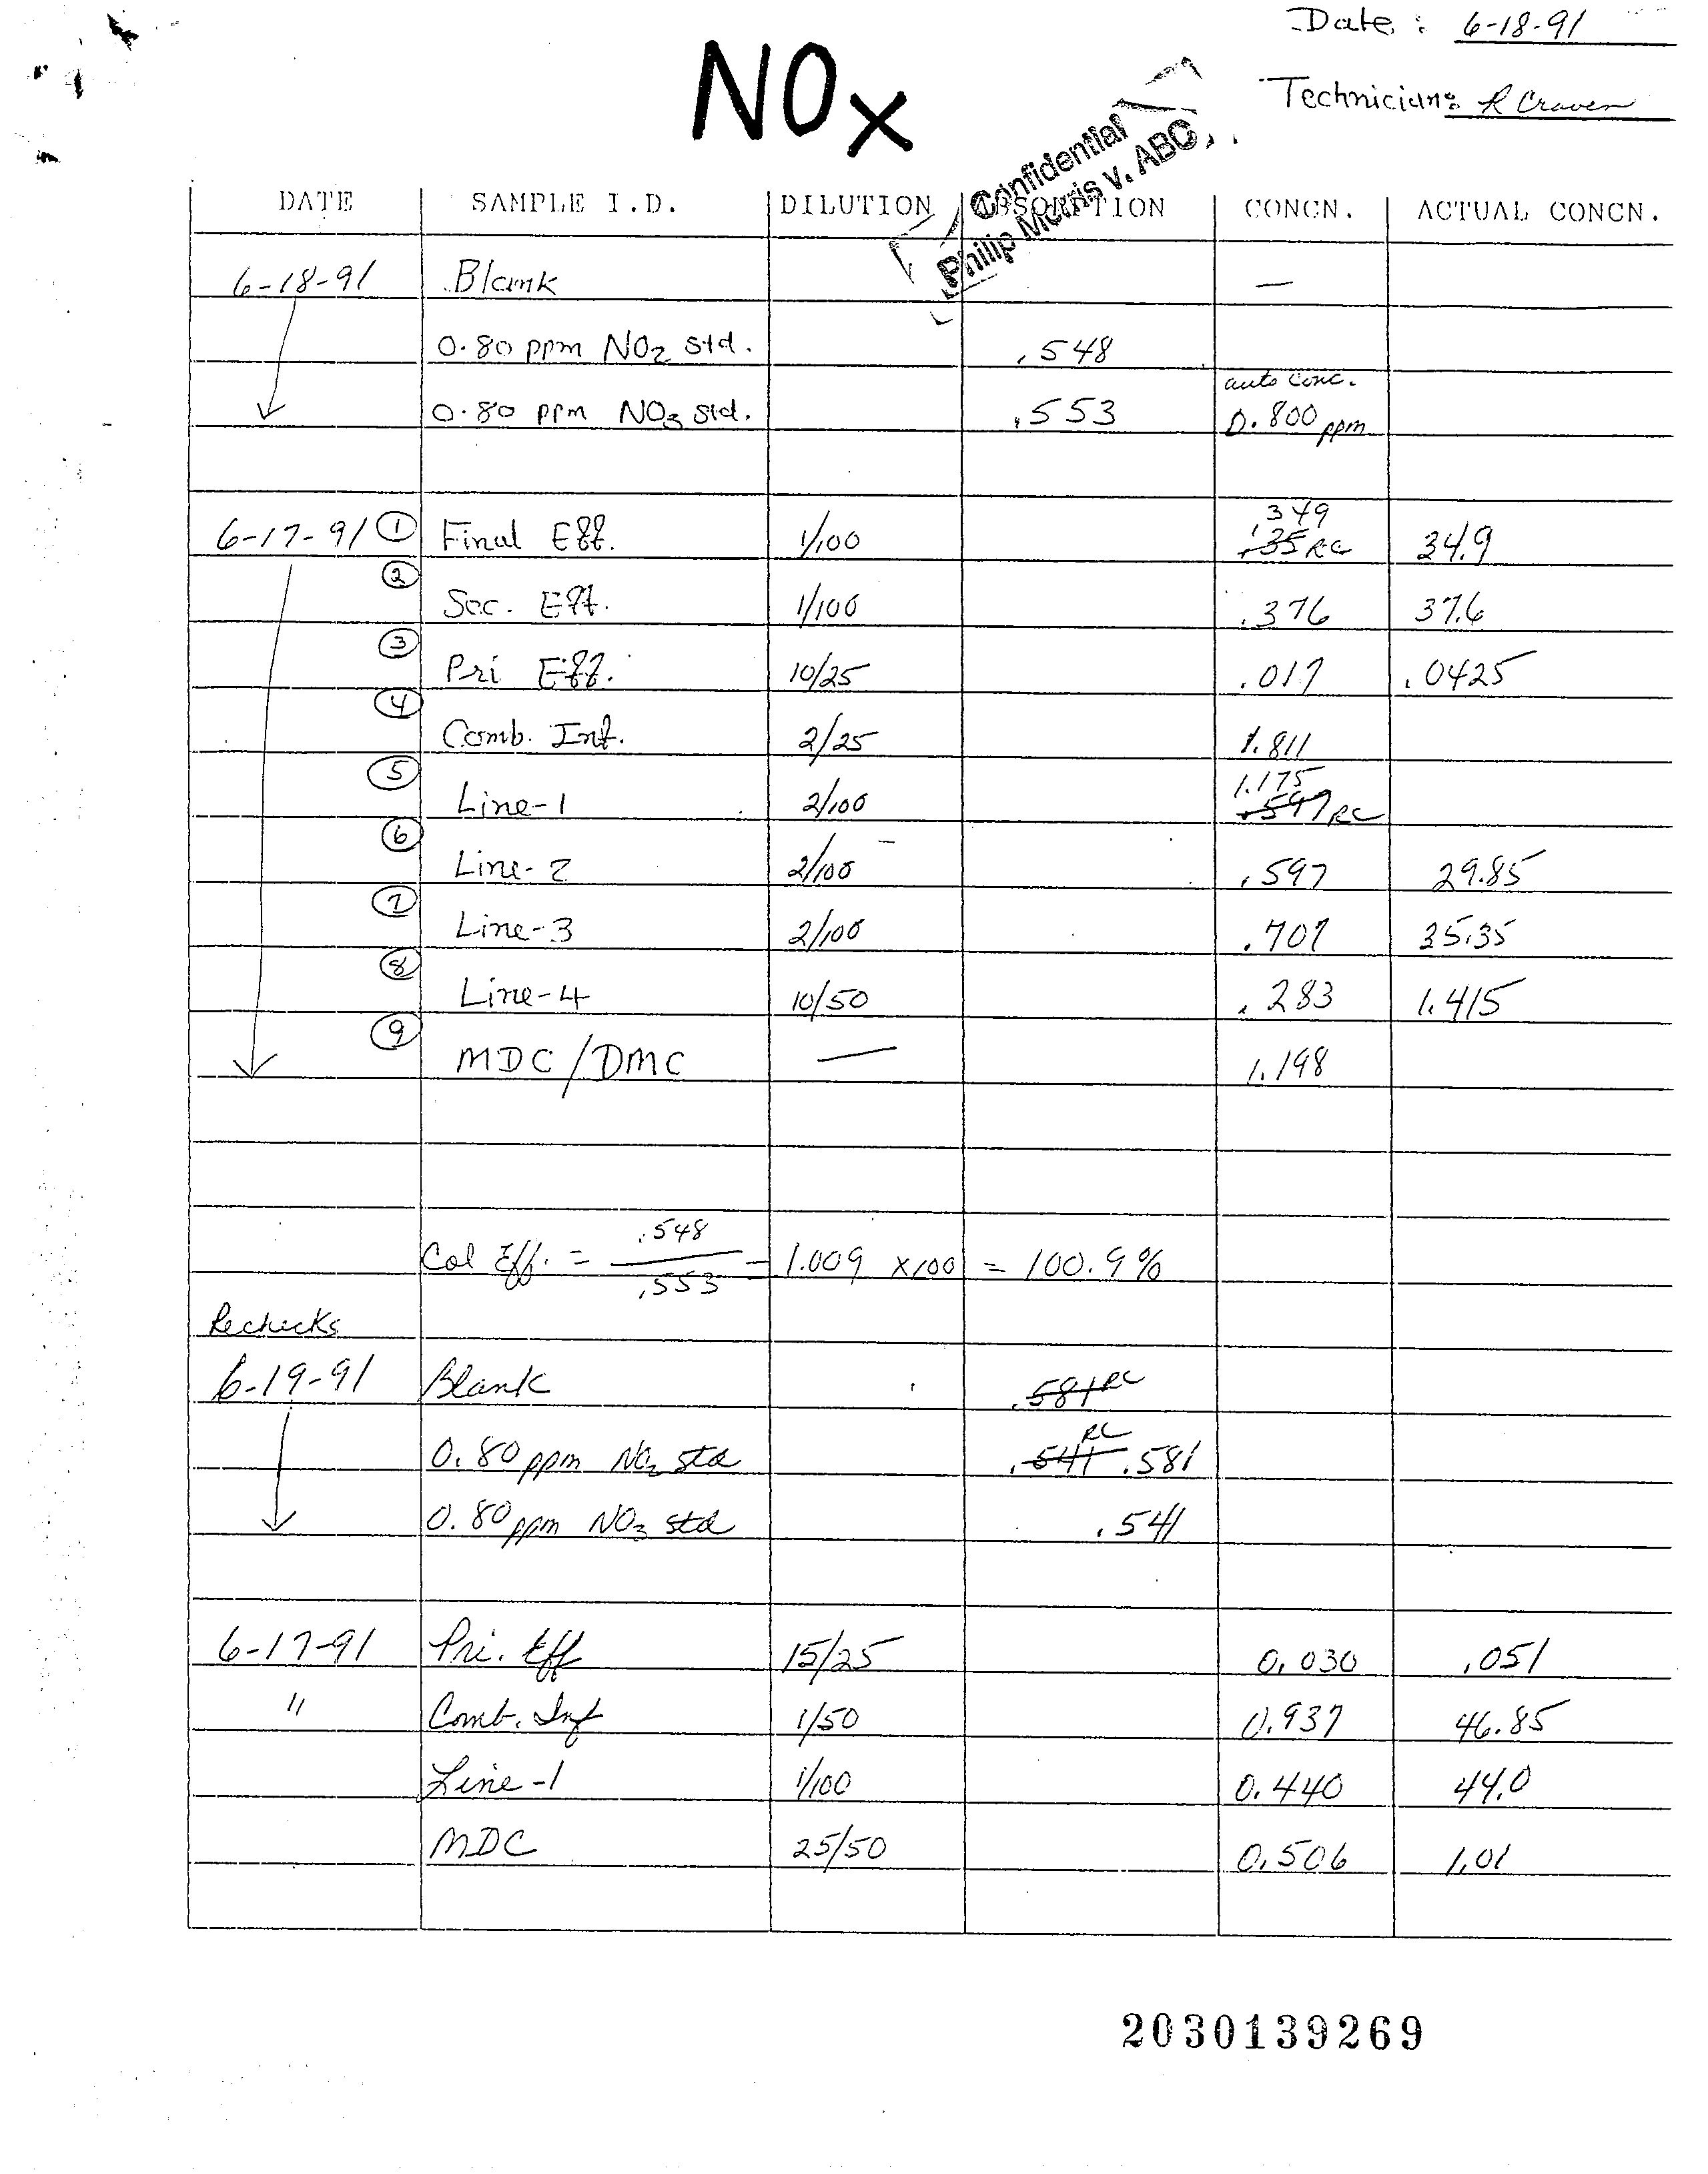 Date : 6-18-91
NOx
Technician: R Craven
Confidential
Philip Morris v. ABC
DATE SAMPLE I.D. DILUTION ABSORPTION CONCN. ACTUAL CONCN.
6-18-91 Blank —
0.80 ppm NO2 std. .548
auto conc.
0.80 ppm NO3 std. .553 0.800 ppm
.349
6-17-91 ① Final Eff. 1/100 .35 RC 34.9
② Sec. Eff. 1/100 .376 37.6
③ Pri Eff. 10/25 .017 .0425
④ Comb. Inf. 2/25 1.811
1.175
⑤ Line-1 2/100 .597 RC
⑥ Line-2 2/100 .597 29.85
⑦ Line-3 2/100 .707 35.35
⑧ Line-4 10/50 .283 1.415
⑨ MDC/DMC — 1.198
.548
Col Eff. = = 1.009 x100 = 100.9%
.553
Rechecks
6-19-91 Blank .581 RC
RC
0.80 ppm NO2 std .541 .581
0.80 ppm NO3 std .541
6-17-91 Pri. Eff 15/25 0.030 .051
" Comb. Inf 1/50 0.937 46.85
Line-1 1/100 0.440 44.0
MDC 25/50 0.506 1.01
2030139269